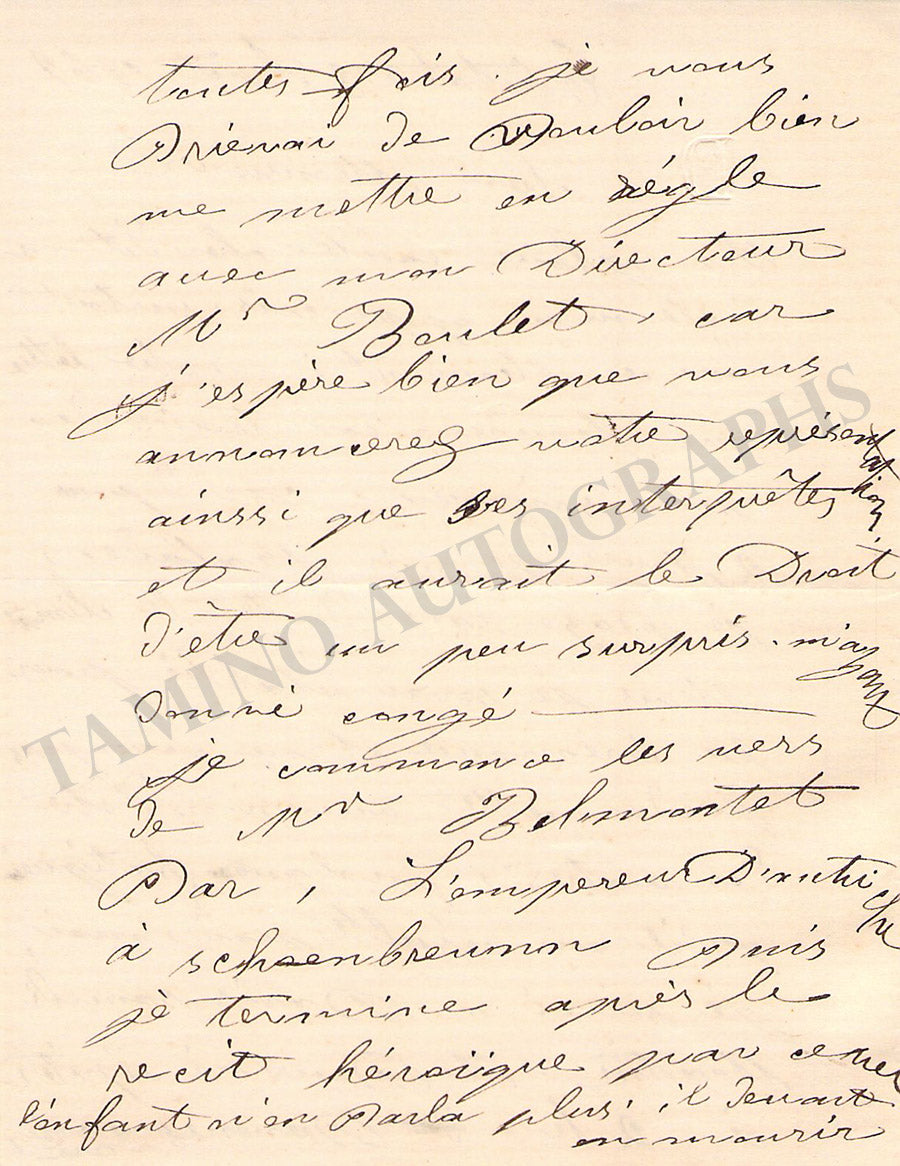 toutes fois. je vous
Prierai de Vouloir bien
me mettre en régle
avec mon Directeur
Mr Boulet, car
j'espère bien que vous
annoncerez votre représentation
ainssi que ses interprêtes
et il aurait le Droit
D'être un peu surpris. m'ayant
Donné congé —
je commence les vers
De Mr Belmontet
Par, L'empereur D'autriche
à schoenbreunn Puis
je termine après le
recit héroïque par ce vers
l'enfant n'en Parla plus, il Devait
en mourir
TAMINO AUTOGRAPHS